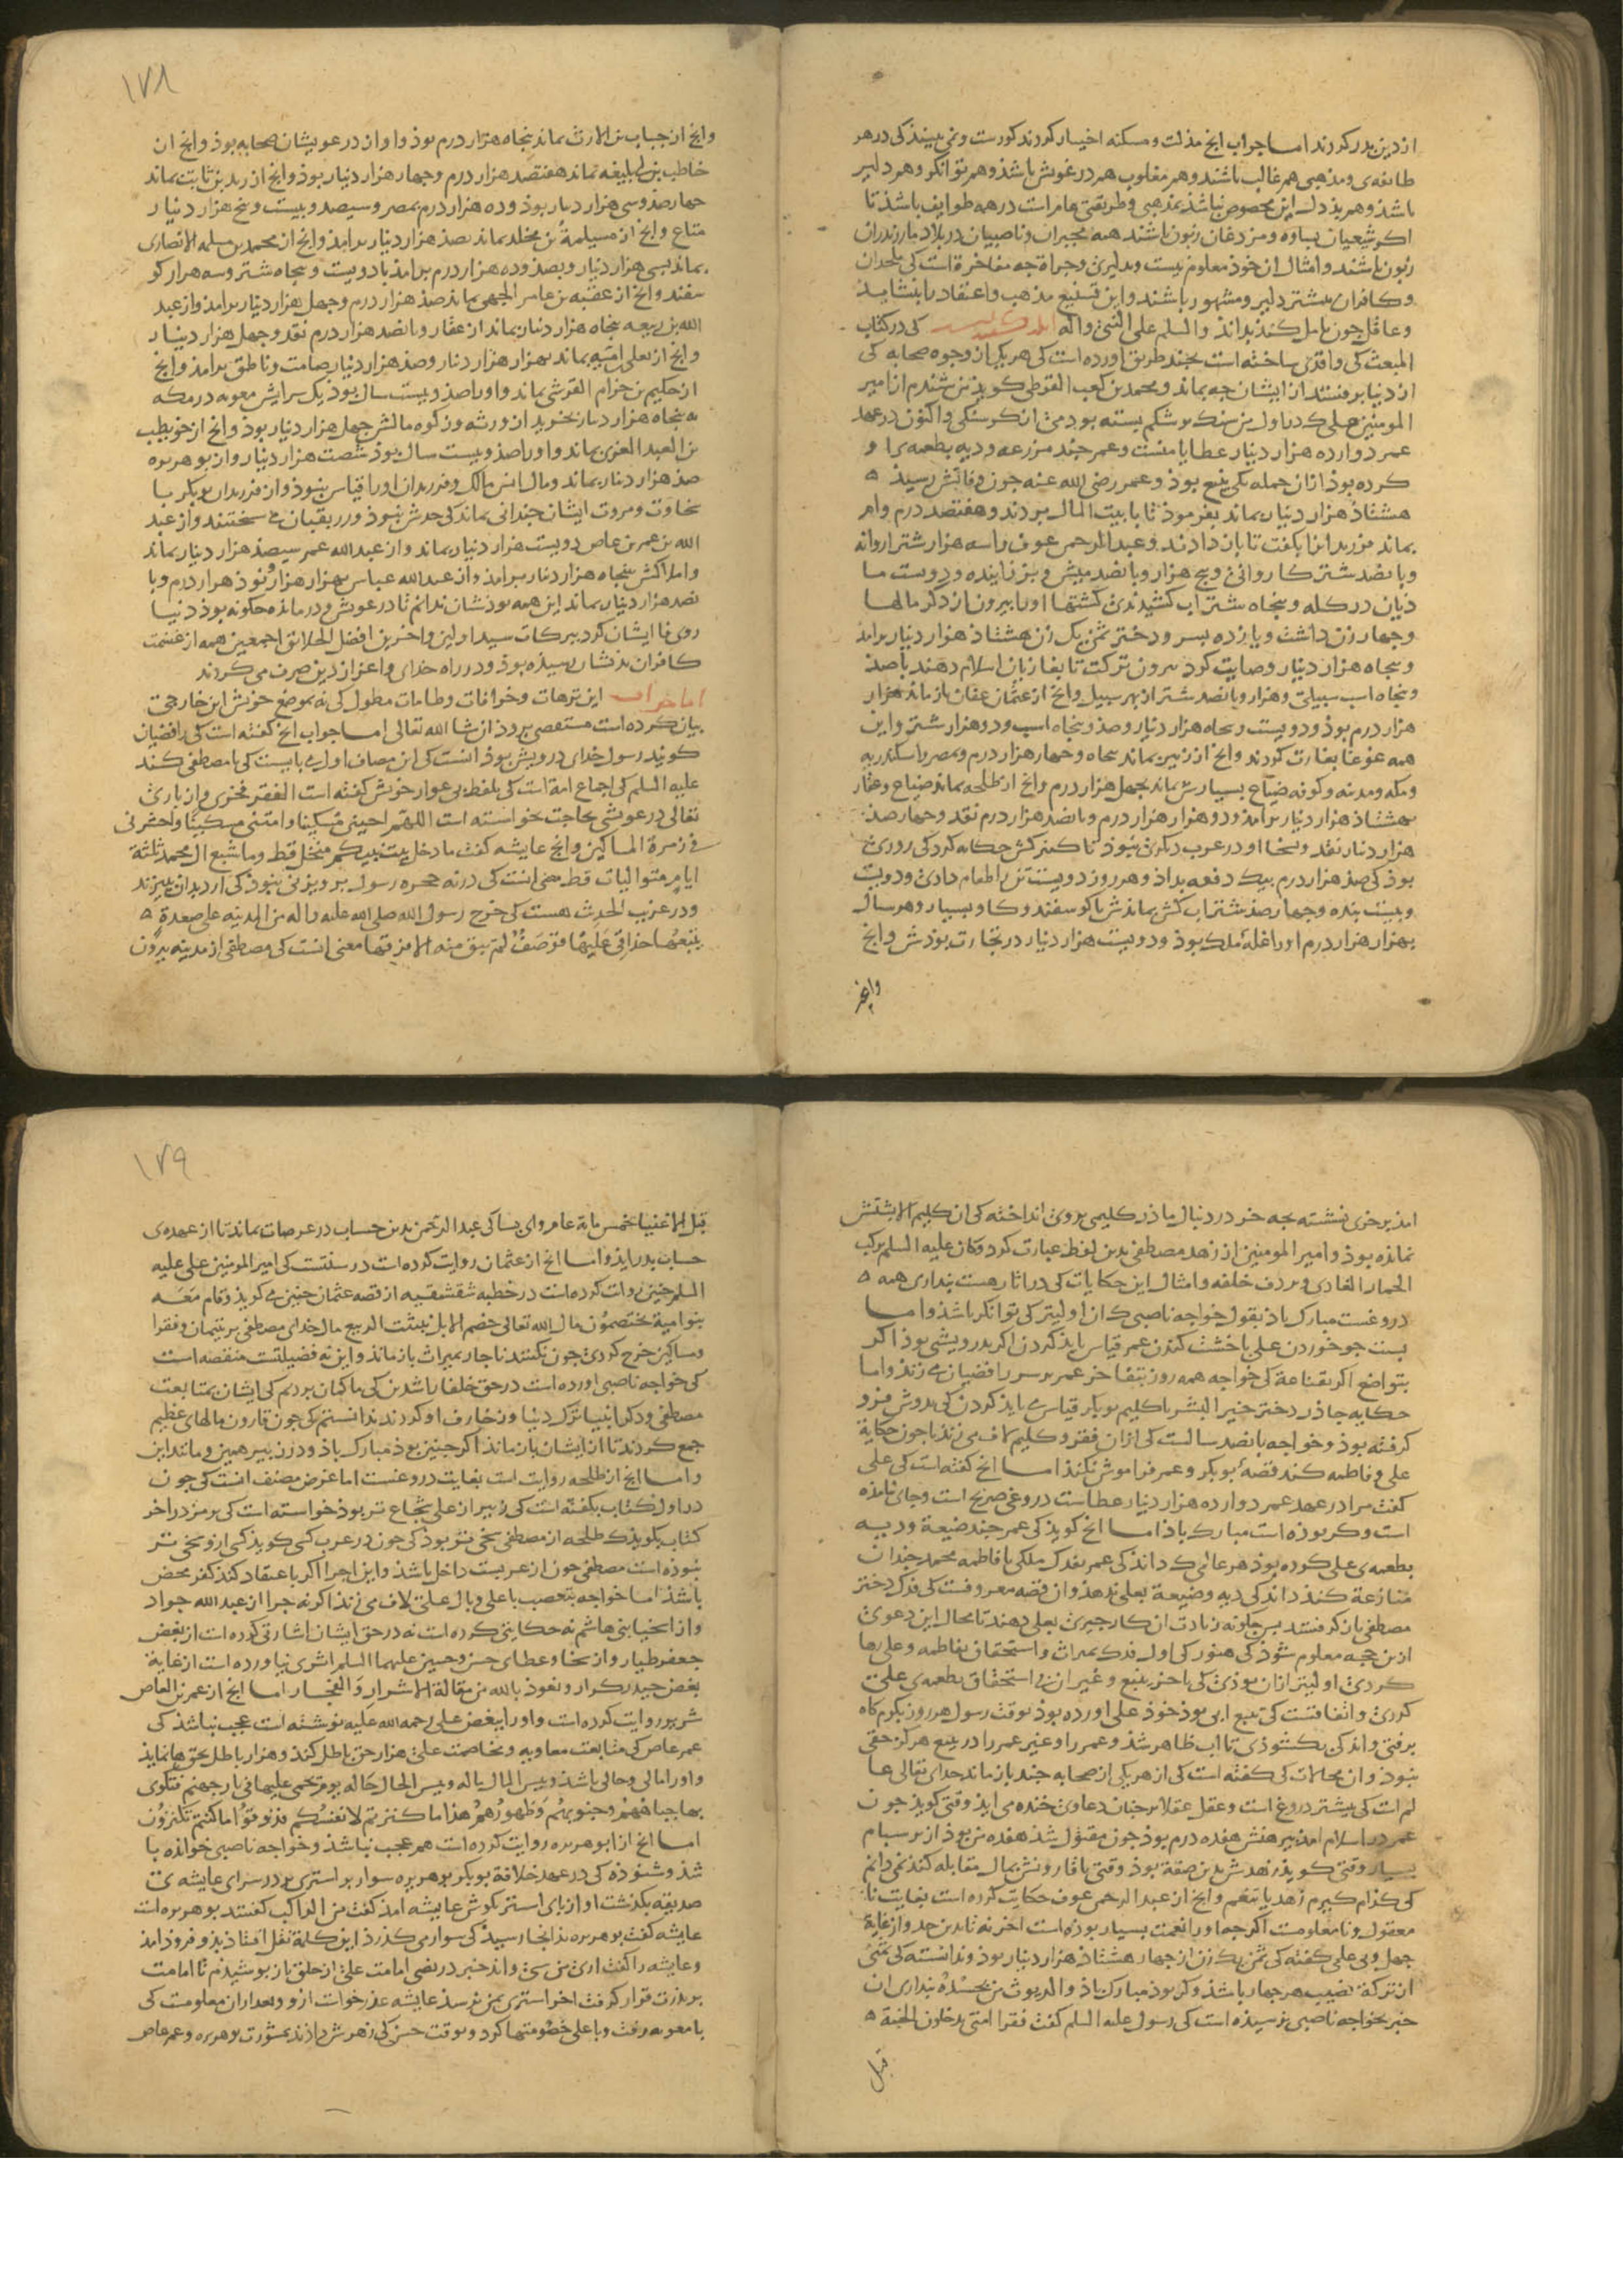 از دین بدر کردند اما جواب انج مذلت ومسکنه اختیار کردند کورست ونمی بینذ کی در هر
طایفه‌ی ومذهبی هم غالب باشند وهم مغلوب هم درغوش باشذ وهم توانکر وهم دلیر
باشذ وهم بذدل این مخصوص نباشذ بمذهبی وطریقتی عام است در همه طوایف باشذ تا
اکر شیعیان بساوه ومزدغان زبون باشند همه مجبران وناصبیان در بلاد مازندران
زبون باشند وامثال این خوذ معلوم نیست وبدلیری وجراة جه مفاخرة است کی ملحدان
وکافران بیشتر دلیر ومشهور باشند واین تشنیع مذهب واعتقاد را بنشایذ
وعاقل جون تامل کند بداند والسلم علی النبی واله کی در کتاب
المبعث کی واقدی ساخته است بجند طریق اورده است کی هر یکی از وجوه صحابه کی
از دنیا برفتند از ایشان جه بماند ومحمد بن کعب القرظی کویذ من شنیدم از امیر
المومنین علی کی در اول من سنک بر شکم بسته بودمی از کرسنکی واکنون در عهد
عمر دوازده هزار دینار عطایا منست وعمر جند مزرعه ودیه بطعمه برا و
کرده بوذ ازان جمله یکی ینبع بوذ وعمر رضی الله عنه جون وفاتش رسیذ
هشتاذ هزار دینار بماند بفرموذ تا بابیت المال بردند وهفتصد درم وام
بماند فرزندانرا بکفت تا باز دادند وعبد الرحمن عوف راسه هزار شتر اروانه
وبانصد شتر کاروانی وبنج هزار وبانصد میش وبز زاینده ودویست ما
ذیان در کله وبنجاه شتر اب کشیدندی کشتها اورا بیرون از دکر مالها
وجهار زن داشت ویازده بسر ودختر ثمن یک زن هشتاذ هزار دینار برامذ
وبنجاه هزار دینار وصایت کرد بیرون ترکت تا بغازیان اسلام دهند باصذ
وبنجاه اسب سبیلی وهزار وبانصد شتر از بهر سبیل وانج از عثمان عفان باز ماند هزار
هزار درم بوذ ودویست وبنجاه هزار دینار وصذ وبنجاه اسب ودو هزار شتر واین
همه غوغا بغارت کردند وانج از زبیر بماند بنجاه وجهار هزار درم وبمصر واسکندریه
ومکه ومدینه وکوفه ضیاع بسیارش بماند بجهل هزار درم وانج از طلحه بماند ضیاع وعقار
بهشتاذ هزار دینار برامذ ودو هزار هزار درم وبانصد هزار درم نقد وجهار صذ
هزار دینار نقد وسخا او در عرب دیکری نبوذ تا کمتر کسی حکایه کرد کی روزی
بوذ کی صذ هزار درم بیک دفعه بداذ وهر روز دویست تن را طعام دادی ودویست
وبیست بنده وجهار صذ شتر اب کش بماندش با کوسفند وکاو بسیار وهر سال
بهزار هزار درم اورا غله ملک بوذ ودویست هزار دینار در تجارت بوذش وانج
وانج
١٧٨
وانج از خباب بن الارت بماند بنجاه هزار درم بوذ واو از درعویشان صحابه بوذ وانج از
خاطب بن ابی بلیغه بماند هفتصد هزار درم وجهار هزار دینار بوذ وانج از زید بن ثابت بماند
جهارصذ وسی هزار دینار بوذ وده هزار درم بمصر وسیصد وبیست وبنج هزار دینار
متاع وانج از مسیلمة بن مخلد بماند بصذ هزار دینار برامذ وانج از محمد بن مسلمه الانصاری
بماند بسی هزار دینار وبصذ وده هزار درم برامذ با دویست وبنجاه شتر وسه هزار کو
سفند وانج از عقبه بن عامر الجهمی بماند صذ هزار درم وجهل هزار دینار برامذ واز عبد
الله بن ربیعه بنجاه هزار دینار بماند از عقار وبانصد هزار درم نقد وجهل هزار دینار
وانج از یعلی امیه بماند بهزار هزار دینار وصذ هزار دینار صامت وناطق برامذ وانج
از حکیم بن حزام القرشی بماند واورا صذ وبیست سال بوذ یک سرایش معویه در مکه
به بنجاه هزار دینار بخرید از ورثه وزکوه مالش جهل هزار دینار بوذ وانج از خویطب
بن العبد العزی بماند واورا صذ وبیست سال بوذ شصت هزار دینار واز بو هریره
صذ هزار دینار بماند ومال انس مالک وفرزندان اورا قیاس نبوذ واز فرزندان بوبکر با
سخاوت ومروت ایشان جندانی بماند کی حدش نبوذ وزر بقبان می سختند واز عبد
الله بن عمر بن عاص دویست هزار دینار بماند واز عبد الله عمر سیصذ هزار دینار بماند
واملاکش ببنجاه هزار دینار برامذ واز عبد الله عباس بهزار هزار ونوذ هزار درم وبا
نصد هزار دینار بماند این همه بوذشان ندانم تا درعوش ودرمانده جکونه بوذ دنیا
روی فا ایشان کرد ببرکات سید اولین واخرین افضل الخلایق اجمعین همه از غنیمت
کافران بذیشان رسیذه بوذ ودر راه خدای واعزاز دین صرف می کردند
اما جواب این ترهات وخرافات وطامات مطول کی نه بموضع خوش این خارجی
بیان کرده است مستقصی بروذ ان شا الله تعالی اما جواب انج کفته است کی رافضیان
کویند رسول خدای درویش بوذ انست کی این مصاف اول می بایست کی با مصطفی کند
علیه السلم کی اجماع امة است کی بلفظ بی عوار خوش کفته است الفقر فخری واز باری
تعالی درعوشی بحاجت بخواسته است اللهم احینی مسکینا وامتنی مسکینا واحشرنی
فی زمرة المساکین وانج عایشه کفت ما دخل بیت نبیکم منخل قط وما شبع ال محمد ثلثة
ایام متوالیات قط معنی انست کی در نه حجره رسول برویزنی نبوذ کی ارد بدان ببیزند
ودر غریب الحدیث هست کی خرج رسول الله صلی الله علیه واله من المدینه علی صعدة
یتبعها حذاقی علیها قوصف لم یبق منه الا قرقفها معنی انست کی مصطفی از مدینه بیرون
امذ بر خری نشسته بجه خر در دنبال ماذر کلیمی بروی انداخته کی ان کلیم الا بشتش
نمانده بوذ وامیر المومنین از زهد مصطفی بدین لفظ عبارت کرد وکان علیه السلم یرکب
الحمار العاری ویردف خلفه وامثال این حکایات کی در اثار هست بنداری همه
دروغست مبارک باذ بقول خواجه ناصبی ک ان اولیتر کی توانکر باشذ واما
بست جو خوردن علی با خشت کندن عمر قیاس بایذ کردن اکر بدرویشی بوذ اکر
بتواضع اکر بقناعة کی خواجه همه روز بتفاخر عمر بر سر رافضیان می زنذ واما
حکایه جاذر دختر خیر البشر باکلیم بوبکر قیاس می بایذ کردن کی بدوش فرو
کرفته بوذ وخواجه بانصد سالست کی ازان فقر وکلیم لاف می زنذ تا جون حکایة
علی وفاطمه کند قصه بوبکر وعمر فراموش نکند اما انج کفته است کی علی
کفت مرا در عهد عمر دوازده هزار دینار عطاست دروغی صریح است وجای نامذه
است وکر بوذه است مبارک باذ اما انج کویذ کی عمر جند ضیعة ودیه
بطعمه‌ی علی کرده بوذ هر عاقلی ک داند کی عمر بفدک ملکی با فاطمه محمد جندان
منازعة کند داند کی دیه وضیعة بعلی ندهذ وان قصه معروفست کی فدک دختر
مصطفی باز کرفتند بس جکونه زیادت ازان کار جیزی بعلی دهند تا محال این دعوی
ازین حجه معلوم شوذ کی هنوز کی اول فدک بمیراث واستحقاق بفاطمه وعلی رها
کردی اولیتر ازان بوذی کی باخر ینبع وغیر ان بی استحقاق بطعمه‌ی علی
کردی واتفاقست کی ینبع ابی بوذ خوذ علی اورده بوذ بوقت رسول هر روز بکرم کاه
برفتی واندکی بکشوذی تا اب ظاهر شذ وعمر را وغیر عمر را در ینبع هرکز حقی
نبوذ وان محالات کی کفته است کی از هر یکی از صحابه جند باز ماند خدای تعالی عا
لم است کی بیشتر دروغ است وعقل عقلا بر جنان دعاوی خنده می ایذ وقتی کویذ جون
عمر در اسلام امذ بیرهنش هفده درم بوذ جون مقتول شذ هفده من بوذ از بر سبام
بسیار وقتی کویذ زهدش بدین صفة بوذ وقتی باقارونش بمال مقابله کند نمی دانم
کی کذام کیرم زهد یا تنعم وانج از عبد الرحمن عوف حکایت کرده است بغایت نا
معقول ونامعلومست اکرجه اورا نعمت بسیار بوذه است اخر نه تا بدین حد واز غایة
جهل وبی علمی کفته کی ثمن یک زن از جهار هشتاذ هزار دینار بوذ وندانسته کی ثمنی
از ترکة نصیب هر جهار باشذ وکر بوذ مبارک باذ والدیوث من یحسده بنداری ان
خبر بخواجه ناصبی نرسیذه است کی رسول علیه السلم کفت فقرا امتی یدخلون الجنة
قبل
١٧٩
قبل الاغنیا بخمس مایة عام وای بسا کی عبد الرحمن بدین حساب در عرصات بماند تا از عهده‌ی
حساب بدر ایذ واما انج از عثمان روایت کرده است درستست کی امیر المومنین علی علیه
السلم جنین روایت کرده است در خطبه شقشقیه از قصه عثمان جنین می کویذ وقام معه
بنو امیة یخضمون مال الله تعالی خضم الابل نبتة الربیع مال خدای مصطفی بر یتیمان وفقرا
ومساکین خرج کردی جون نکنند ناجار بمیراث باز ماند واین نه فضیلتست منقصه است
کی خواجه ناصبی اورده است در حق خلفا راشدین کی ما کمان بردیم کی ایشان بمتابعت
مصطفی ودکر انبیا ترک دنیا وزخارف او کردند ندانستیم کی جون قارون مالهای عظیم
جمع کردند تا از ایشان باز ماند اکر جنین بوذ مبارک باذ ودر زبیر همین ومانند این
واما انج از طلحه روایت است بغایت دروغست اما غرض مصنف انست کی جون
در اول کتاب بکفته است کی زبیر از علی شجاع تر بوذ خواسته است کی بر مز در اخر
کتاب بکویذ ک طلحه از مصطفی سخی تر بوذ کی جون در عرب کسی کویذ کی ازو سخی تر
نبوذه است مصطفی جون از عربست داخل باشذ واین اجرا اکر با عتقاد کند کفر محض
باشذ اما خواجه بتعصب با علی وال علی لاف می زنذ اکرنه جرا از عبد الله جواد
واز اسخیا بنی هاشم نه حکایتی کرده است نه در حق ایشان اشارتی کرده است از بغض
جعفر طیار واز سخا وعطای حسن وحسین علیهما السلم اثری نیاورده است از غایة
بغض حیدر کرار ونعوذ بالله من مقالة الاشرار والفجار اما انج از عمر بن العاص
شریر روایت کرده است واورا ببغض علی رحمه الله علیه نوشته است عجب نباشذ کی
عمر عاص کی متابعت معاویه ومخاصمت علی هزار حق باطل کند وهزار باطل بحق بنمایذ
واورا مالی وحالی باشذ وبیس المال ماله وبیس الحال حاله یوم یحمی علیها فی نار جهنم فتکوی
بها جباههم وجنوبهم وظهورهم هذا ما کنزتم لانفسکم فذوقوا ما کنتم تکنزون
اما انج از ابو هریره روایت کرده است هم عجب نباشذ وخواجه ناصبی خوانده با
شذ وشنوذه کی در عهد خلافة بوبکر بوهریره سوار بر استری بر در سرای عایشه‌ی
صدیقه بکذشت اواز بای استر بکوش عایشه امذ کفت من الراکب کفتند بو هریره است
عایشه کفت بو هریره بذانجا رسیذ کی سوار می کذرذ این کلمة نقل افتاذ بذو فروذ امذ
وعایشه را کفت اری من سی واند خبر در نص امامت علی از خلق باز بوشیدم تا امامت
بر بذرت قرار کرفت اخر استری بمن نرسذ عایشه عذر خواست ازو وبعد ازان معلومست کی
با معویه رفت وبا علی خصومتها کرد وبوقت حسن کی زهرش داذند بمشورت بو هریره وعمر عاص